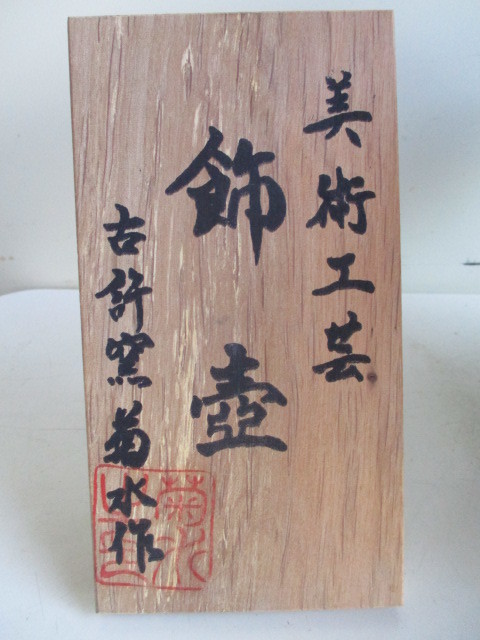 美術工芸
飾壺
古許窯菊水作